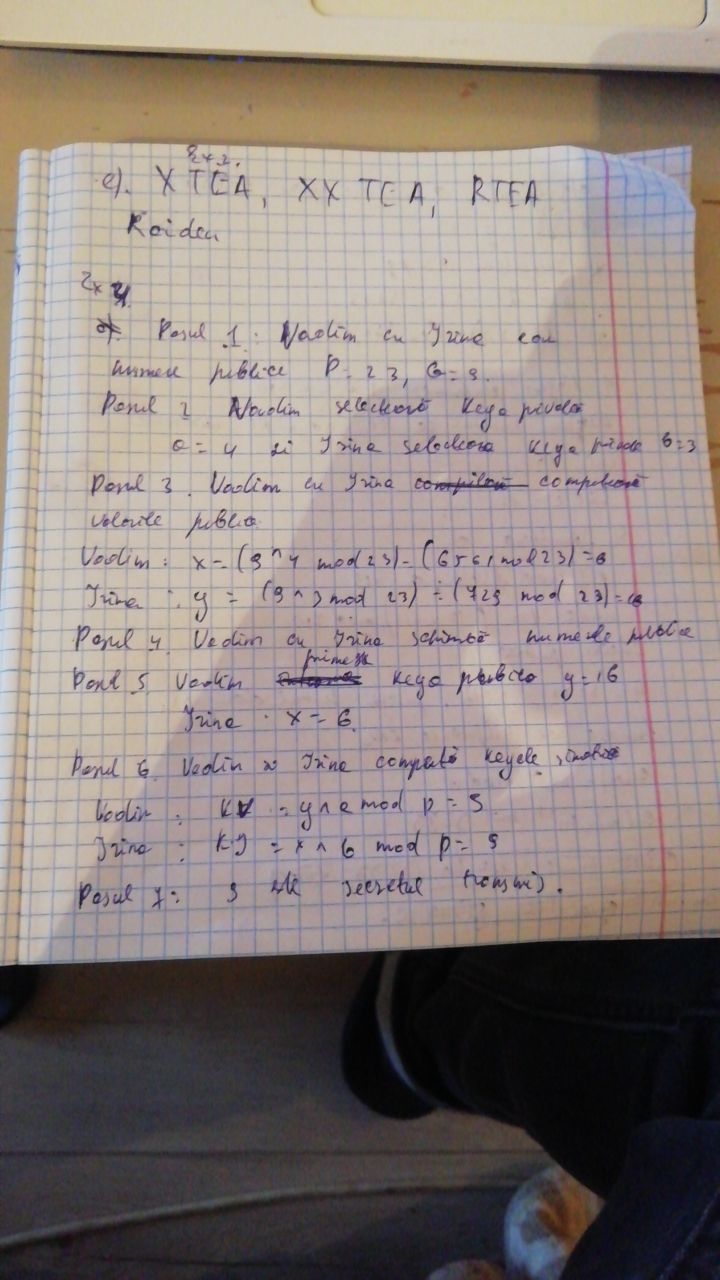 Ex 2.
e). XTEA, XXTEA, RTEA
Raiden
Ex 4
a). Pasul 1: Vadim cu Irina cau
numere publice P=23, G=9.
Pasul 2 Vadim selectează keya privată
a=4 și Irina selecteaza keya privată b=3
Pasul 3. Vadim cu Irina compilează computează
valorile publice
Vadim: x=(9^4 mod 23)=(6561 mod 23)=6
Irina: y=(9^3 mod 23)=(729 mod 23)=16
Pasul 4. Vadim cu Irina schimbă numerele publice
Pasul 5 Vadim primește keya publica y=16
Irina x=6.
Pasul 6. Vadim și Irina compută keyele simetrice
Vadim: KV = y^a mod p = 9
Irina: KI = x^b mod p = 9
Pasul 7: 9 este secretul transmis.